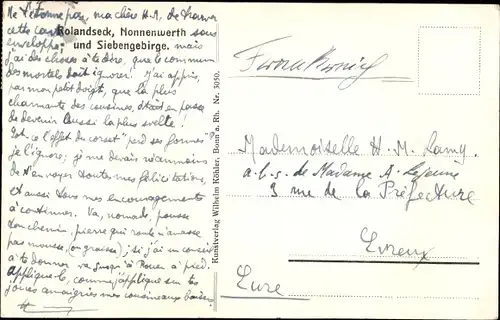 Ne t'étonne pas, ma chère H. M., de trouver
cette carte sous
enveloppe: mais
Rolandseck, Nonnenwerth
und Siebengebirge.
j'ai des choses à te dire, que le commun
des mortels doit ignorer. J'ai appris,
par mon petit doigt, que la plus
charmante des cousines, était en passe
de devenir aussi la plus svelte!
Est-ce l'effet du corset "perd ses formes"?
je l'ignore; je me devais néanmoins
de t'envoyer toutes mes félicitations,
et aussi tous mes encouragements
à continuer. Va, nomade, pousse
ton chemin, pierre qui roule n'amasse
pas mousse, (ou graisse); si j'ai un conseil
à te donner va jusqu'à Rouen à pied.
applique-le, comme j'applique sur tes
joues amaigries mes cousineaux baisers.
Kunstverlag Wilhelm Köhler, Bonn a. Rh. Nr. 3050.
Mademoiselle H. M. Lamy
a.b.s. de Madame A. Lejeune
3 rue de la Préfecture
Evreux
Eure